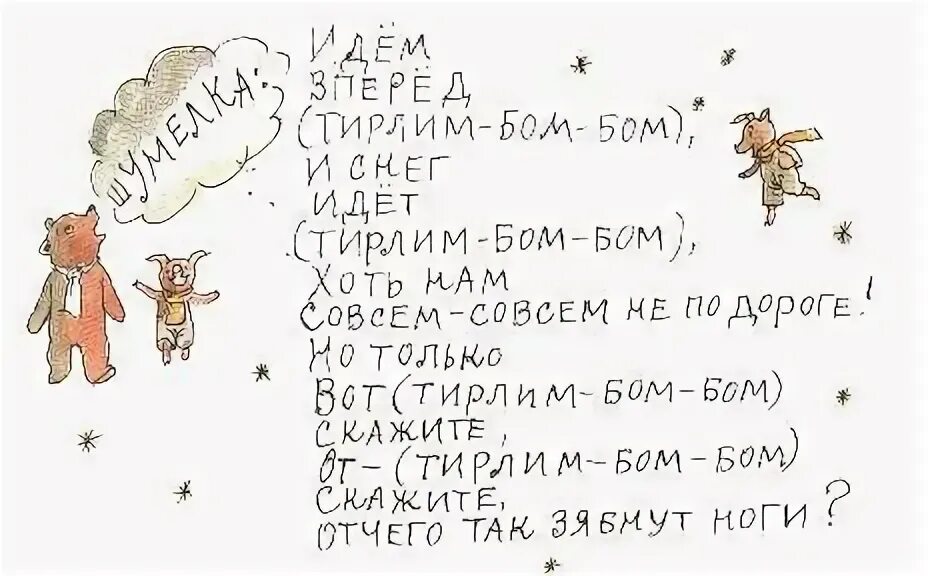 ШУМЕЛКА:
ИДЁМ
ВПЕРЁД
(ТИРЛИМ-БОМ-БОМ),
И СНЕГ
ИДЁТ
(ТИРЛИМ-БОМ-БОМ),
ХОТЬ НАМ
СОВСЕМ-СОВСЕМ НЕ ПО ДОРОГЕ!
НО ТОЛЬКО
ВОТ (ТИРЛИМ-БОМ-БОМ)
СКАЖИТЕ,
ОТ-(ТИРЛИМ-БОМ-БОМ)
СКАЖИТЕ,
ОТЧЕГО ТАК ЗЯБНУТ НОГИ?